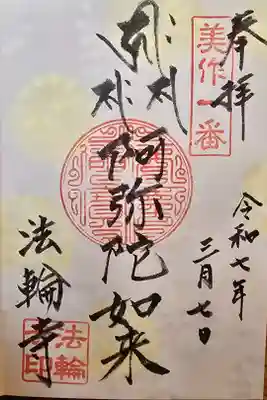 奉拝
美作一番
令和七年
三月七日
阿弥陀如来
法輪寺
法輪
印